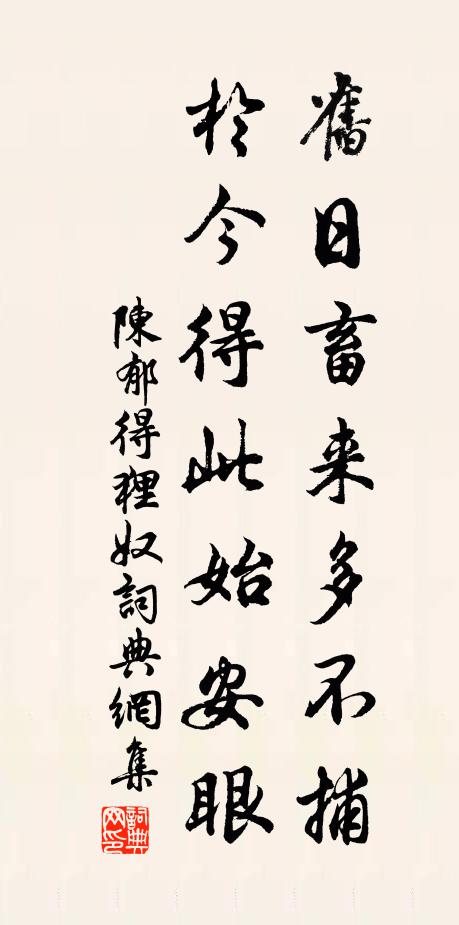 舊日畜来多不捕
於今得此始安眼
陳郁得狸奴詞典網集
詞典網印